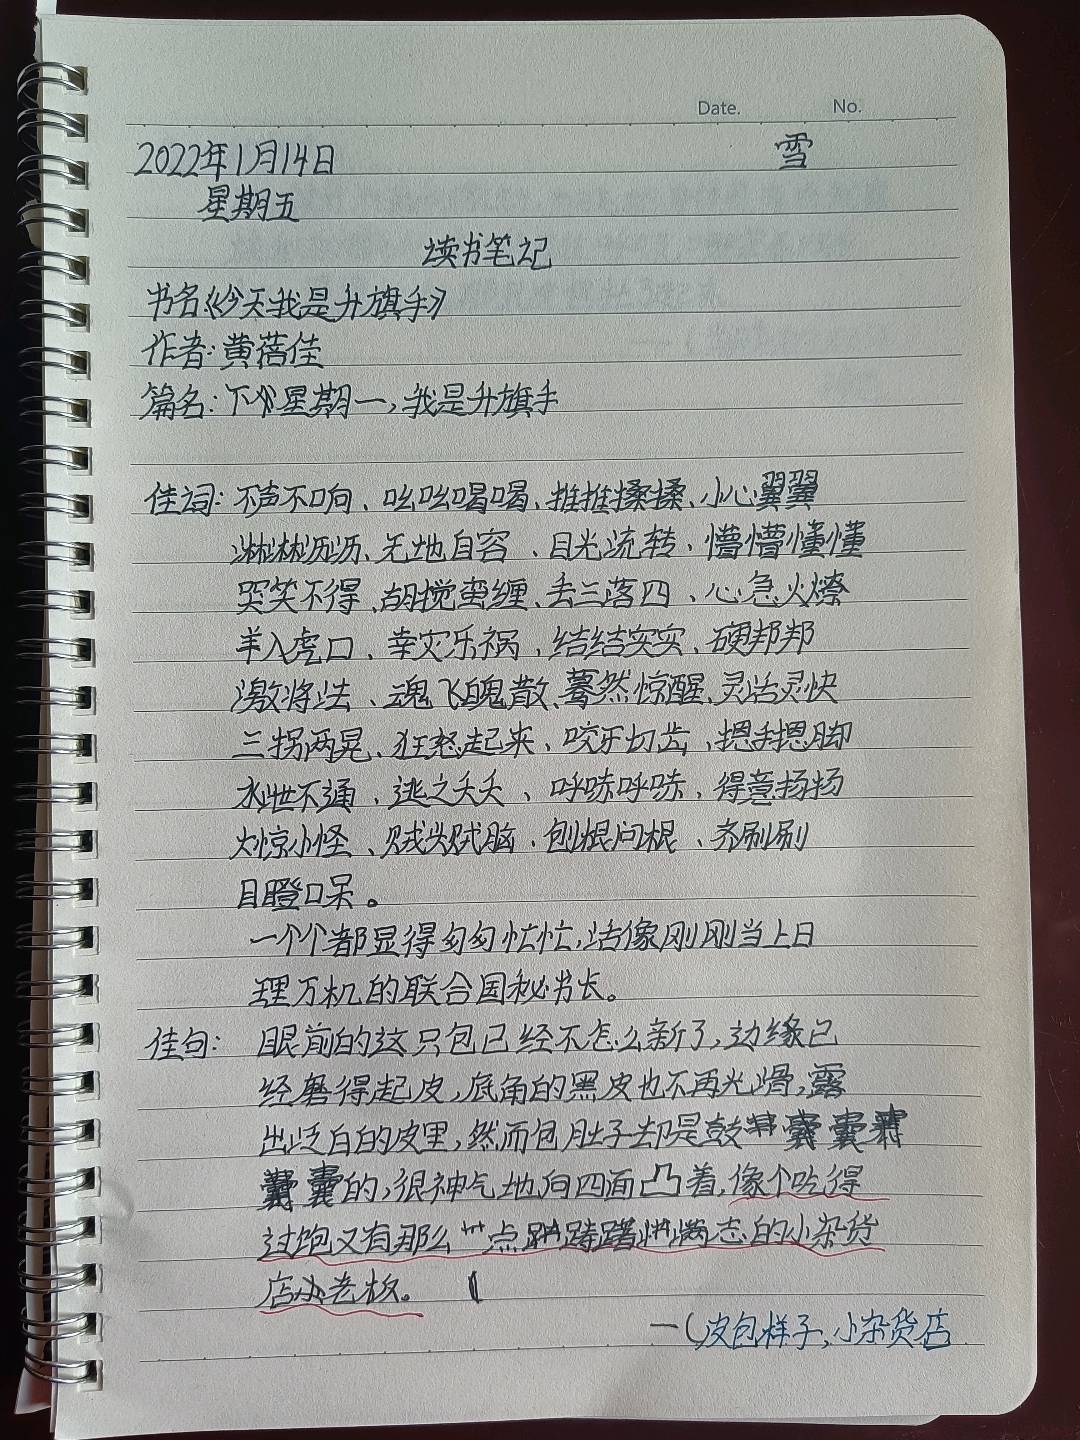 Date. No.
2022年1月14日 雪
星期五
读书笔记
书名:《今天我是升旗手》
作者:黄蓓佳
篇名:下个星期一,我是升旗手
佳词:不声不响、吆吆喝喝、推推搡搡、小心翼翼
淋淋沥沥、无地自容、目光流转、懵懵懂懂
哭笑不得、胡搅蛮缠、丢三落四、心急火燎
羊入虎口、幸灾乐祸、结结实实、硬邦邦
激将法、魂飞魄散、蓦然惊醒、灵活灵快
三拐两晃、狂怒起来、咬牙切齿、摁手摁脚
水泄不通、逃之夭夭、呼哧呼哧、得意扬扬
大惊小怪、贼头贼脑、刨根问根、齐刷刷
目瞪口呆。
一个个都显得匆匆忙忙,活像刚刚当上日
理万机的联合国秘书长。
佳句:眼前的这只包已经不怎么新了,边缘已
经磨得起皮,底角的黑皮也不再光滑,露
出泛白的皮里,然而包肚子却是鼓
囊囊的,很神气地向四面凸着,像个吃得
过饱又有那么一点踌躇满志的小杂货
店小老板。
—(皮包样子,小杂货店